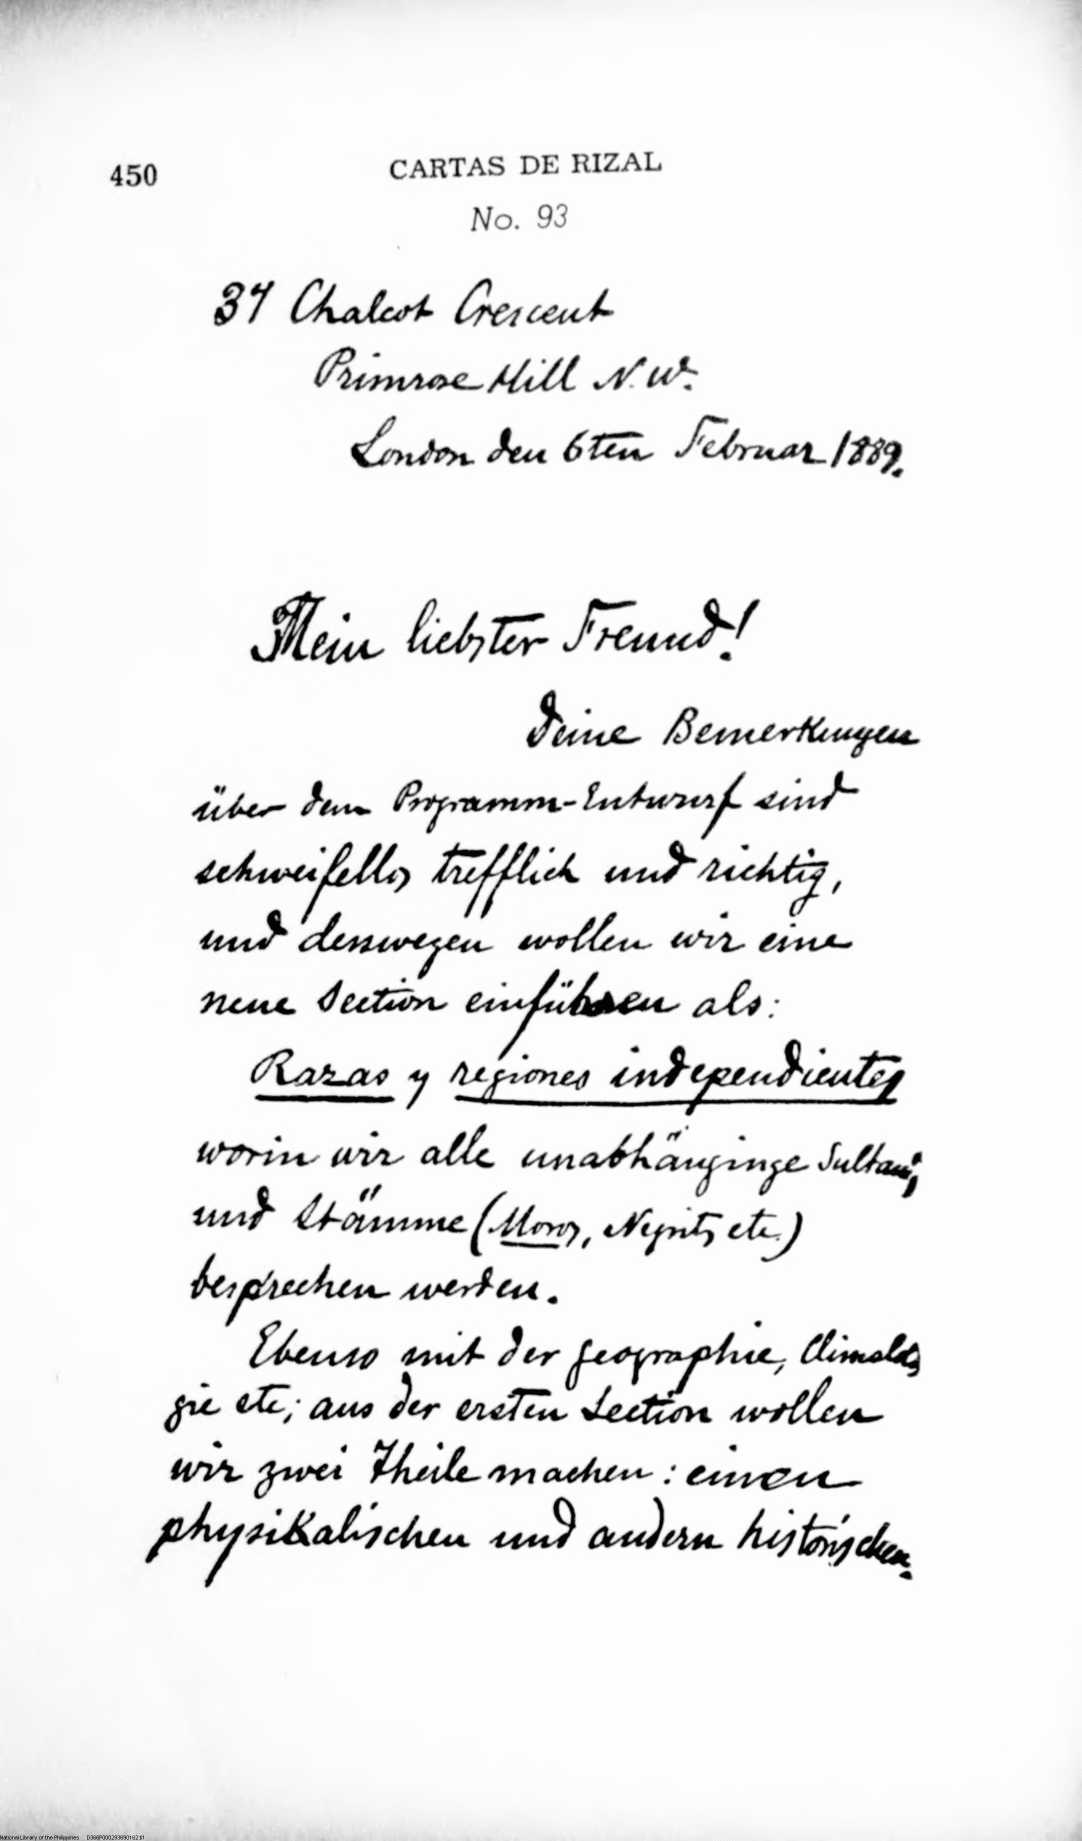 450
CARTAS DE RIZAL
No. 93
37 Chalcot Crescent
Primrose Hill N. W.
London den 6ten Februar 1889.
Mein liebster Freund!
Deine Bemerkungen
über dem Programm-Entwurf sind
schweifellos trefflich und richtig,
und desswegen wollen wir eine
neue Section einführen als:
Razas y regiones independientes
worin wir alle unabhänginge
und Stämme (Moros, Negritos etc.)
besprechen werden.
Ebenso mit der Geographie, Climalo
gie etc; aus der ersten Section wollen
wir zwei Theile machen: einen
physikalischen und andern historischen.
National Library of the Philippines